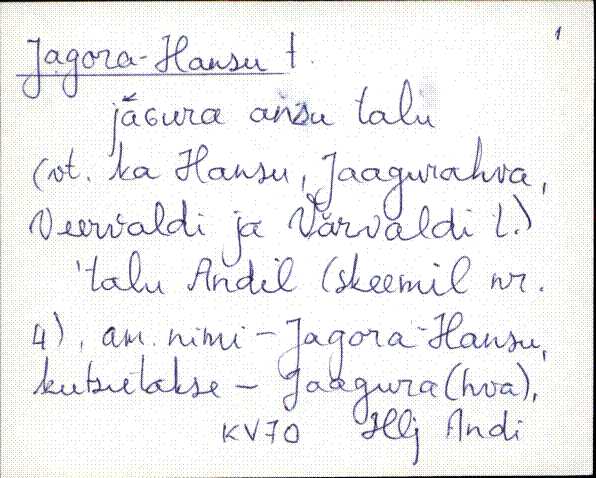 1
Jagora-Hansu t.
jäɢura ansu talu
(vt. ka Hansu, Jaagurahva,
Veervaldi ja Värvaldi t.)
'talu Andil (skeemil nr.
4), am. nimi - Jagora-Hansu,
kutsutakse - Jaagura(hva),
KV70 Hlj Andi